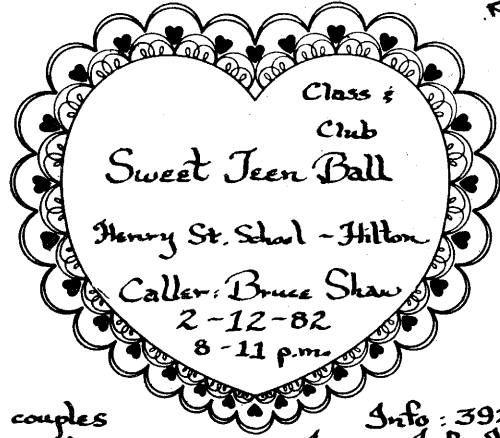 Class &
Club
Sweet Teen Ball
Henry St. School ~ Hilton
Caller: Bruce Shaw
2-12-82
8-11 p.m.
couples
Info: 392